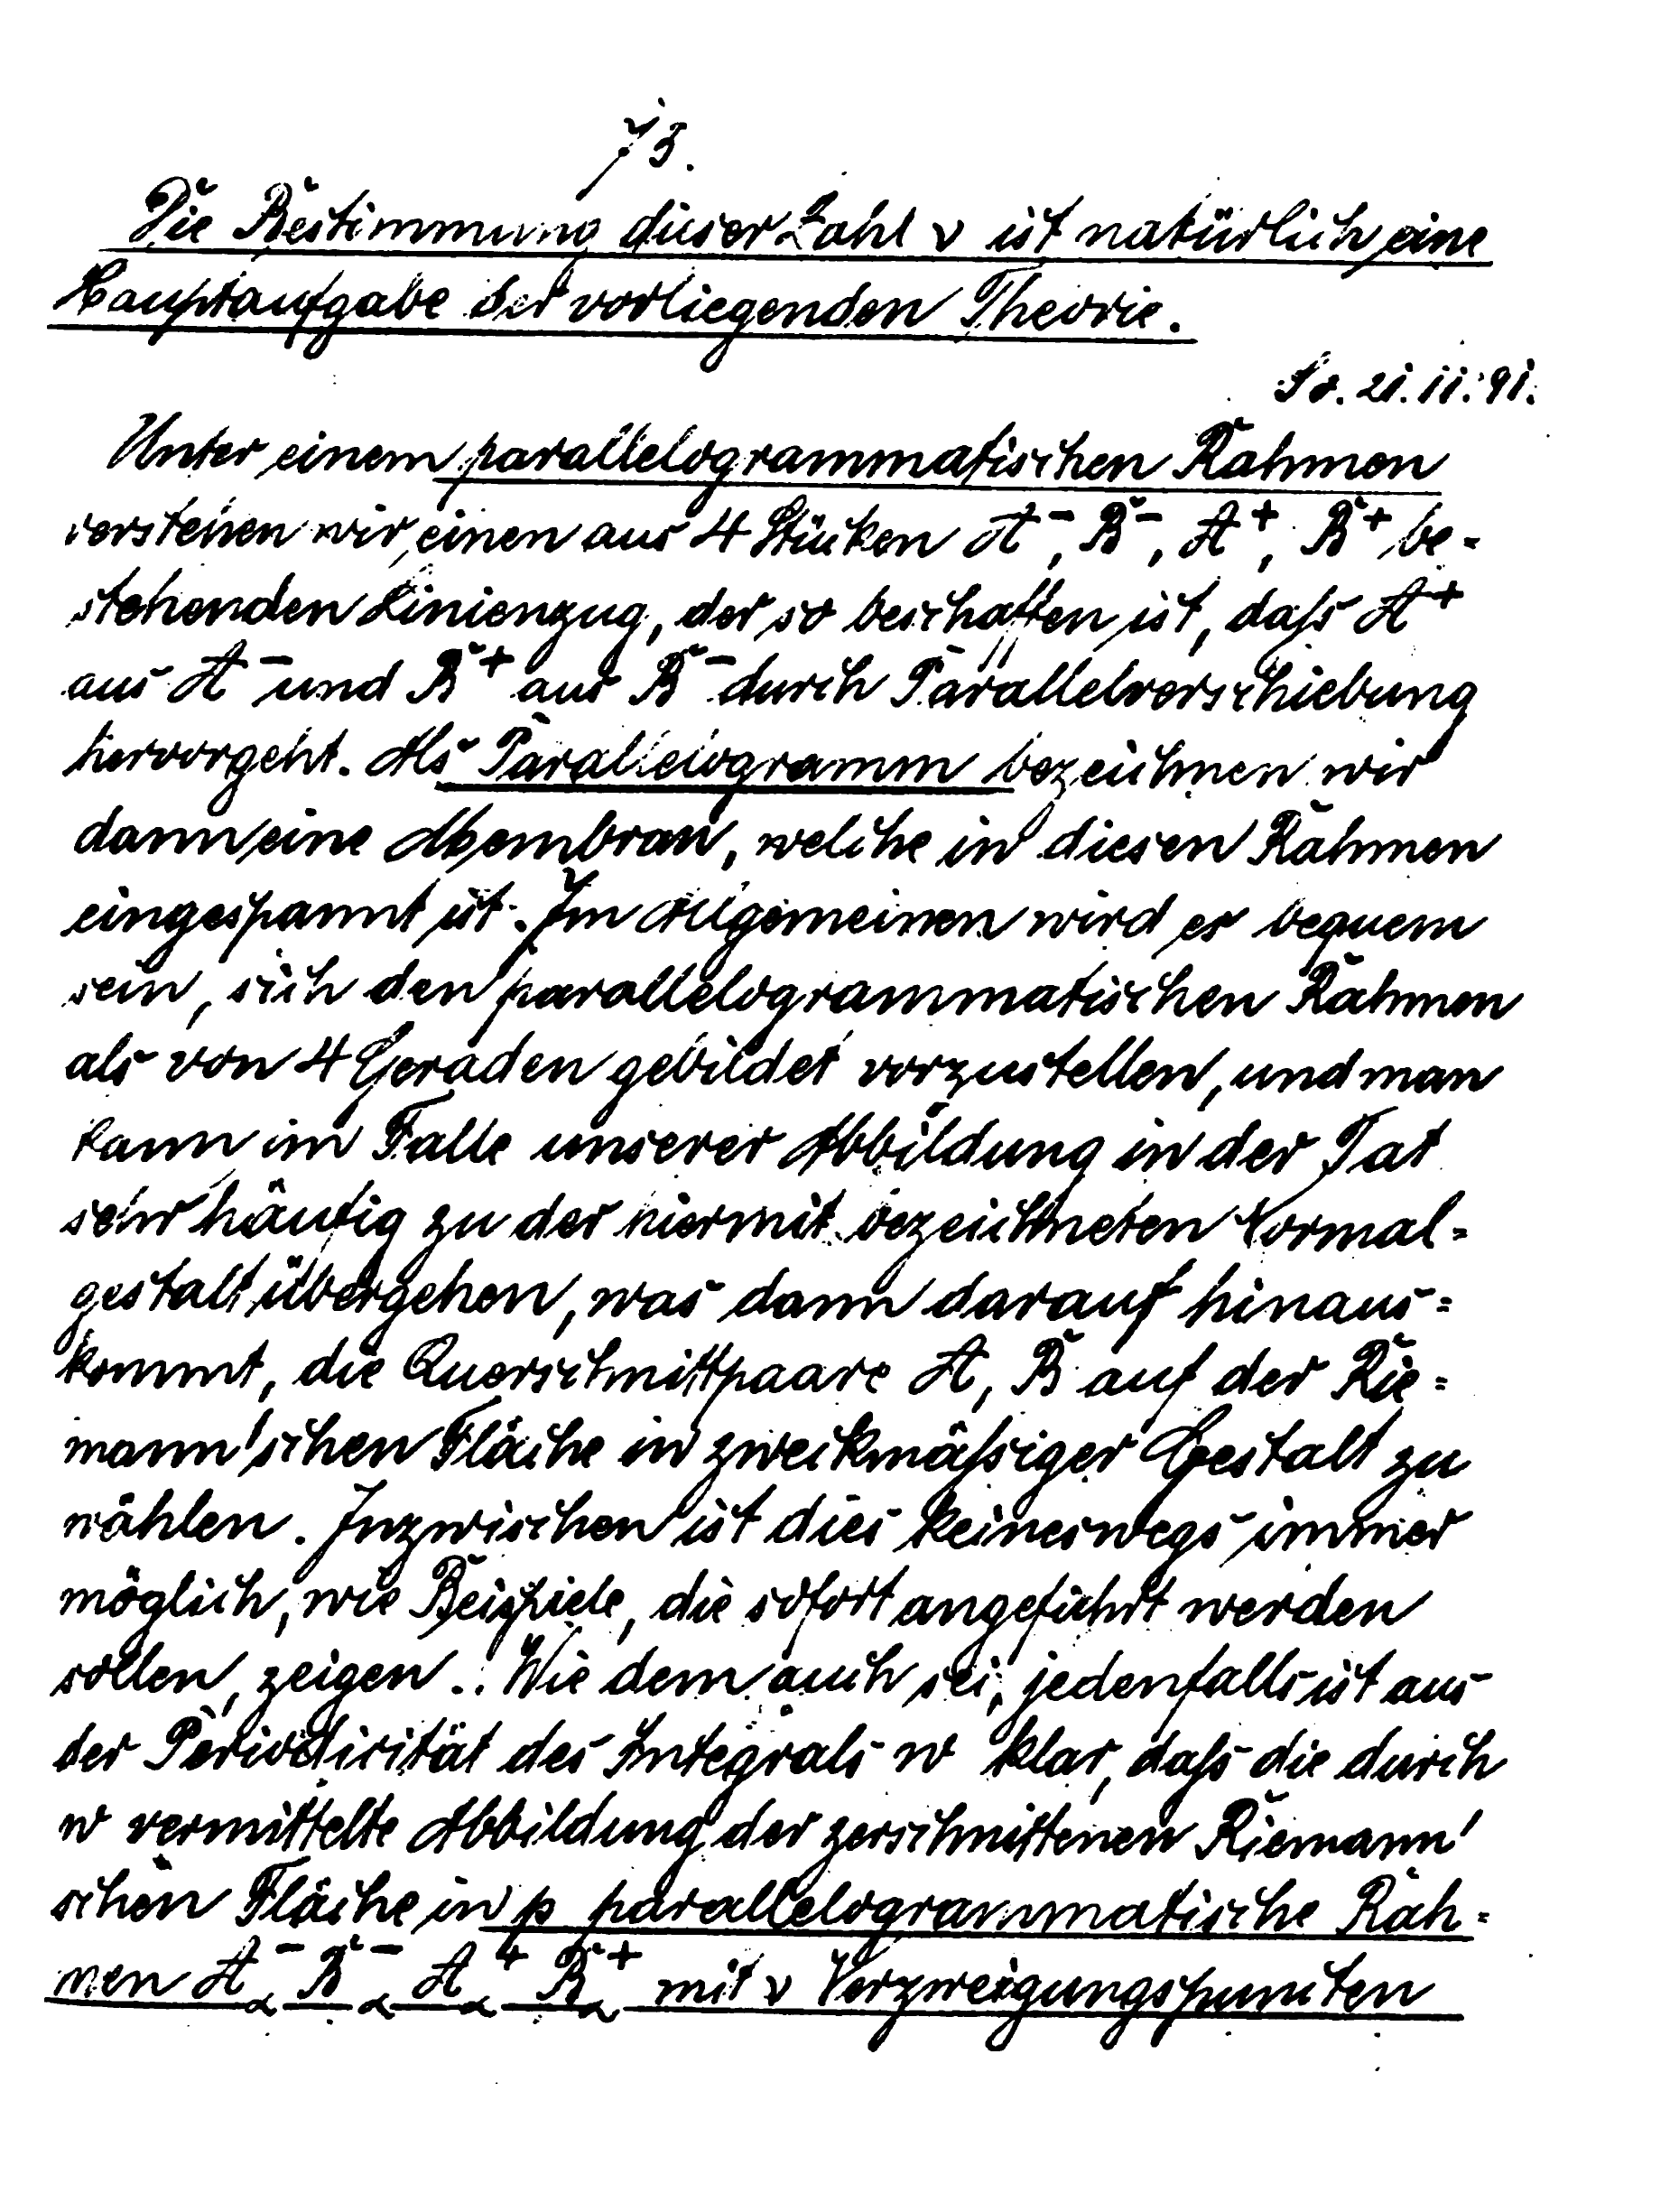 73.
Die Bestimmung dieser Zahl ν ist natürlich eine
Hauptaufgabe der vorliegenden Theorie.
So. 21. 11. 91.
Unter einem parallelogrammatischen Rahmen
verstehen wir einen aus 4 Stücken A⁻, B⁻, A⁺, B⁺ be-
stehenden Linienzug, der so beschaffen ist, daſs A⁺
aus A⁻ und B⁺ aus B⁻ durch Parallelverschiebung
hervorgeht. Als Parallelogramm bezeichnen wir
dann eine Membran, welche in diesen Rahmen
eingespannt ist. Im Allgemeinen wird es bequem
sein, sich den parallelogrammatischen Rahmen
als von 4 Geraden gebildet vorzustellen, und man
kann im Falle unserer Abbildung in der Tat
sehr häufig zu der hiermit bezeichneten Normal=
gestalt übergehen, was dann darauf hinaus=
kommt, die Querschnittpaare A, B auf der Rie=
mann'schen Fläche in zweckmäſsiger Gestalt zu
wählen. Inzwischen ist dies keineswegs immer
möglich, wie Beispiele, die sofort angeführt werden
sollen, zeigen. Wie dem auch sei, jedenfalls ist aus
der Periodicität des Integrals w klar, daſs die durch
w vermittelte Abbildung der zerschnittenen Riemann'
schen Fläche in p parallelogrammatische Rah-
men A⁻α B⁻α A⁺α B⁺α mit ν Verzweigungspuncten